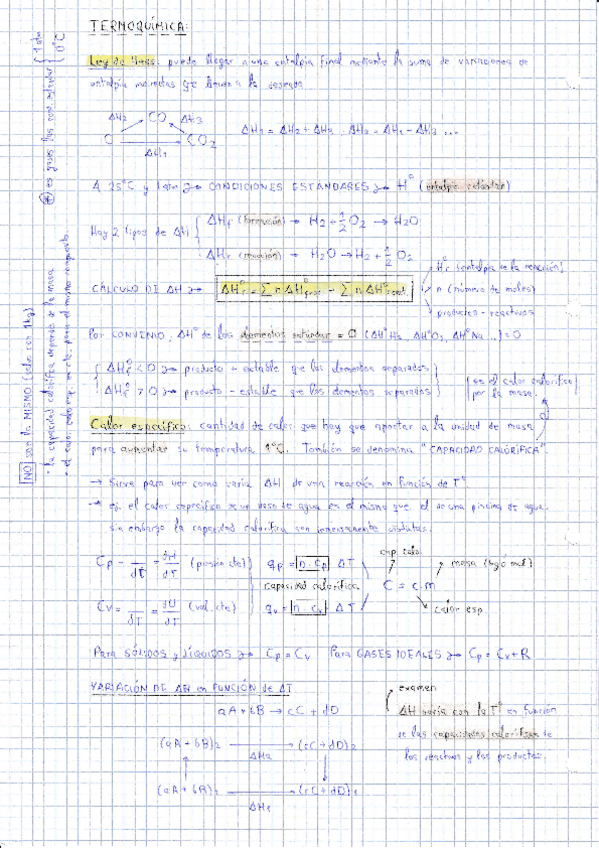 TERMOQUÍMICA:
Ley de Hess: puedo llegar a una entalpía final mediante la suma de variaciones de
entalpía
ΔH2 CO ΔH3
C CO2
ΔH1
ΔH1 = ΔH2 + ΔH3 ΔH2 = ΔH1 - ΔH3 ...
A 25°C y 1 atm → CONDICIONES ESTÁNDARES → H° (entalpía estándar)
Hay 2 tipos de ΔH
ΔHf (formación) → H2 + 1/2 O2 → H2O
ΔHr (reacción) → H2O → H2 + 1/2 O2
CÁLCULO DE ΔH → ΔHr° = Σ n ΔH°prod - Σ n ΔH°react.
Hr° (entalpía de la reacción)
n (número de moles)
productos - reactivos
Por CONVENIO, ΔH° de los elementos estándar = 0 (ΔH°H2, ΔH°O2, ΔH°Na ...) = 0
ΔHf° < 0 → producto + estable que los elementos separados
ΔHf° > 0 → producto - estable que los elementos separados
(es el calor calorífico
por la masa)
Calor específico: cantidad de calor que hay que aportar a la unidad de masa
para aumentar su temperatura 1°C. También se denomina "CAPACIDAD CALORÍFICA".
→ Sirve para ver como varía ΔH de una reacción en función de T°
→ ej. el calor específico de un vaso de agua es el mismo que el de una piscina de agua,
sin embargo la capacidad calorífica son inmensamente distintas.
Cp = dT = dH/dT (presión cte)
qp = n · cp ΔT
capacidad calorífica
Cv = dT = dU/dT (vol. cte)
qv = n · cv ΔT
cap calor.
masa (kg ó mol)
C = c · m
calor esp.
Para SÓLIDOS y LÍQUIDOS → Cp = Cv Para GASES IDEALES → Cp = Cv + R
VARIACIÓN DE ΔH en FUNCIÓN de ΔT
aA + bB → cC + dD
(aA + bB)2 → (cC + dD)2
ΔH2
(aA + bB)1 → (cC + dD)1
ΔH1
examen
ΔH varía con la T° en función
de las capacidades caloríficas de
los reactivos y los productos.
en gases las con. estándar { 1 atm
0°C
NO son lo MISMO (calor con 1 kg)
· la capacidad calorífica depende de la masa
· el calor calo. esp. es cte. para el mismo compuesto